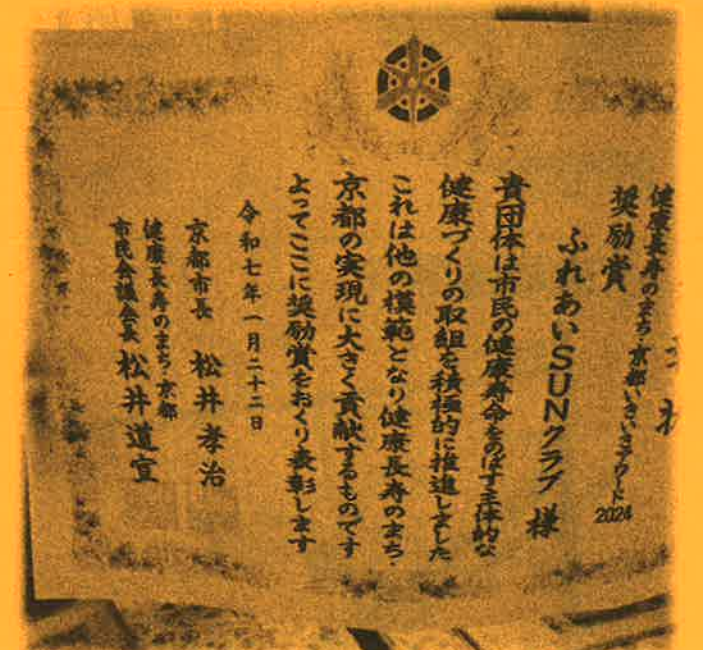 状
健康長寿のまち・京都いきいきアワード2024
奨励賞
ふれあいSUNクラブ 様
貴団体は市民の健康寿命をのばす主体的な
健康づくりの取組を積極的に推進しました
これは他の模範となり健康長寿のまち・
京都の実現に大きく貢献するものです
よってここに奨励賞をおくり表彰します
令和七年一月二十二日
京都市長 松井孝治
健康長寿のまち・京都
市民会議会長 松井道宣